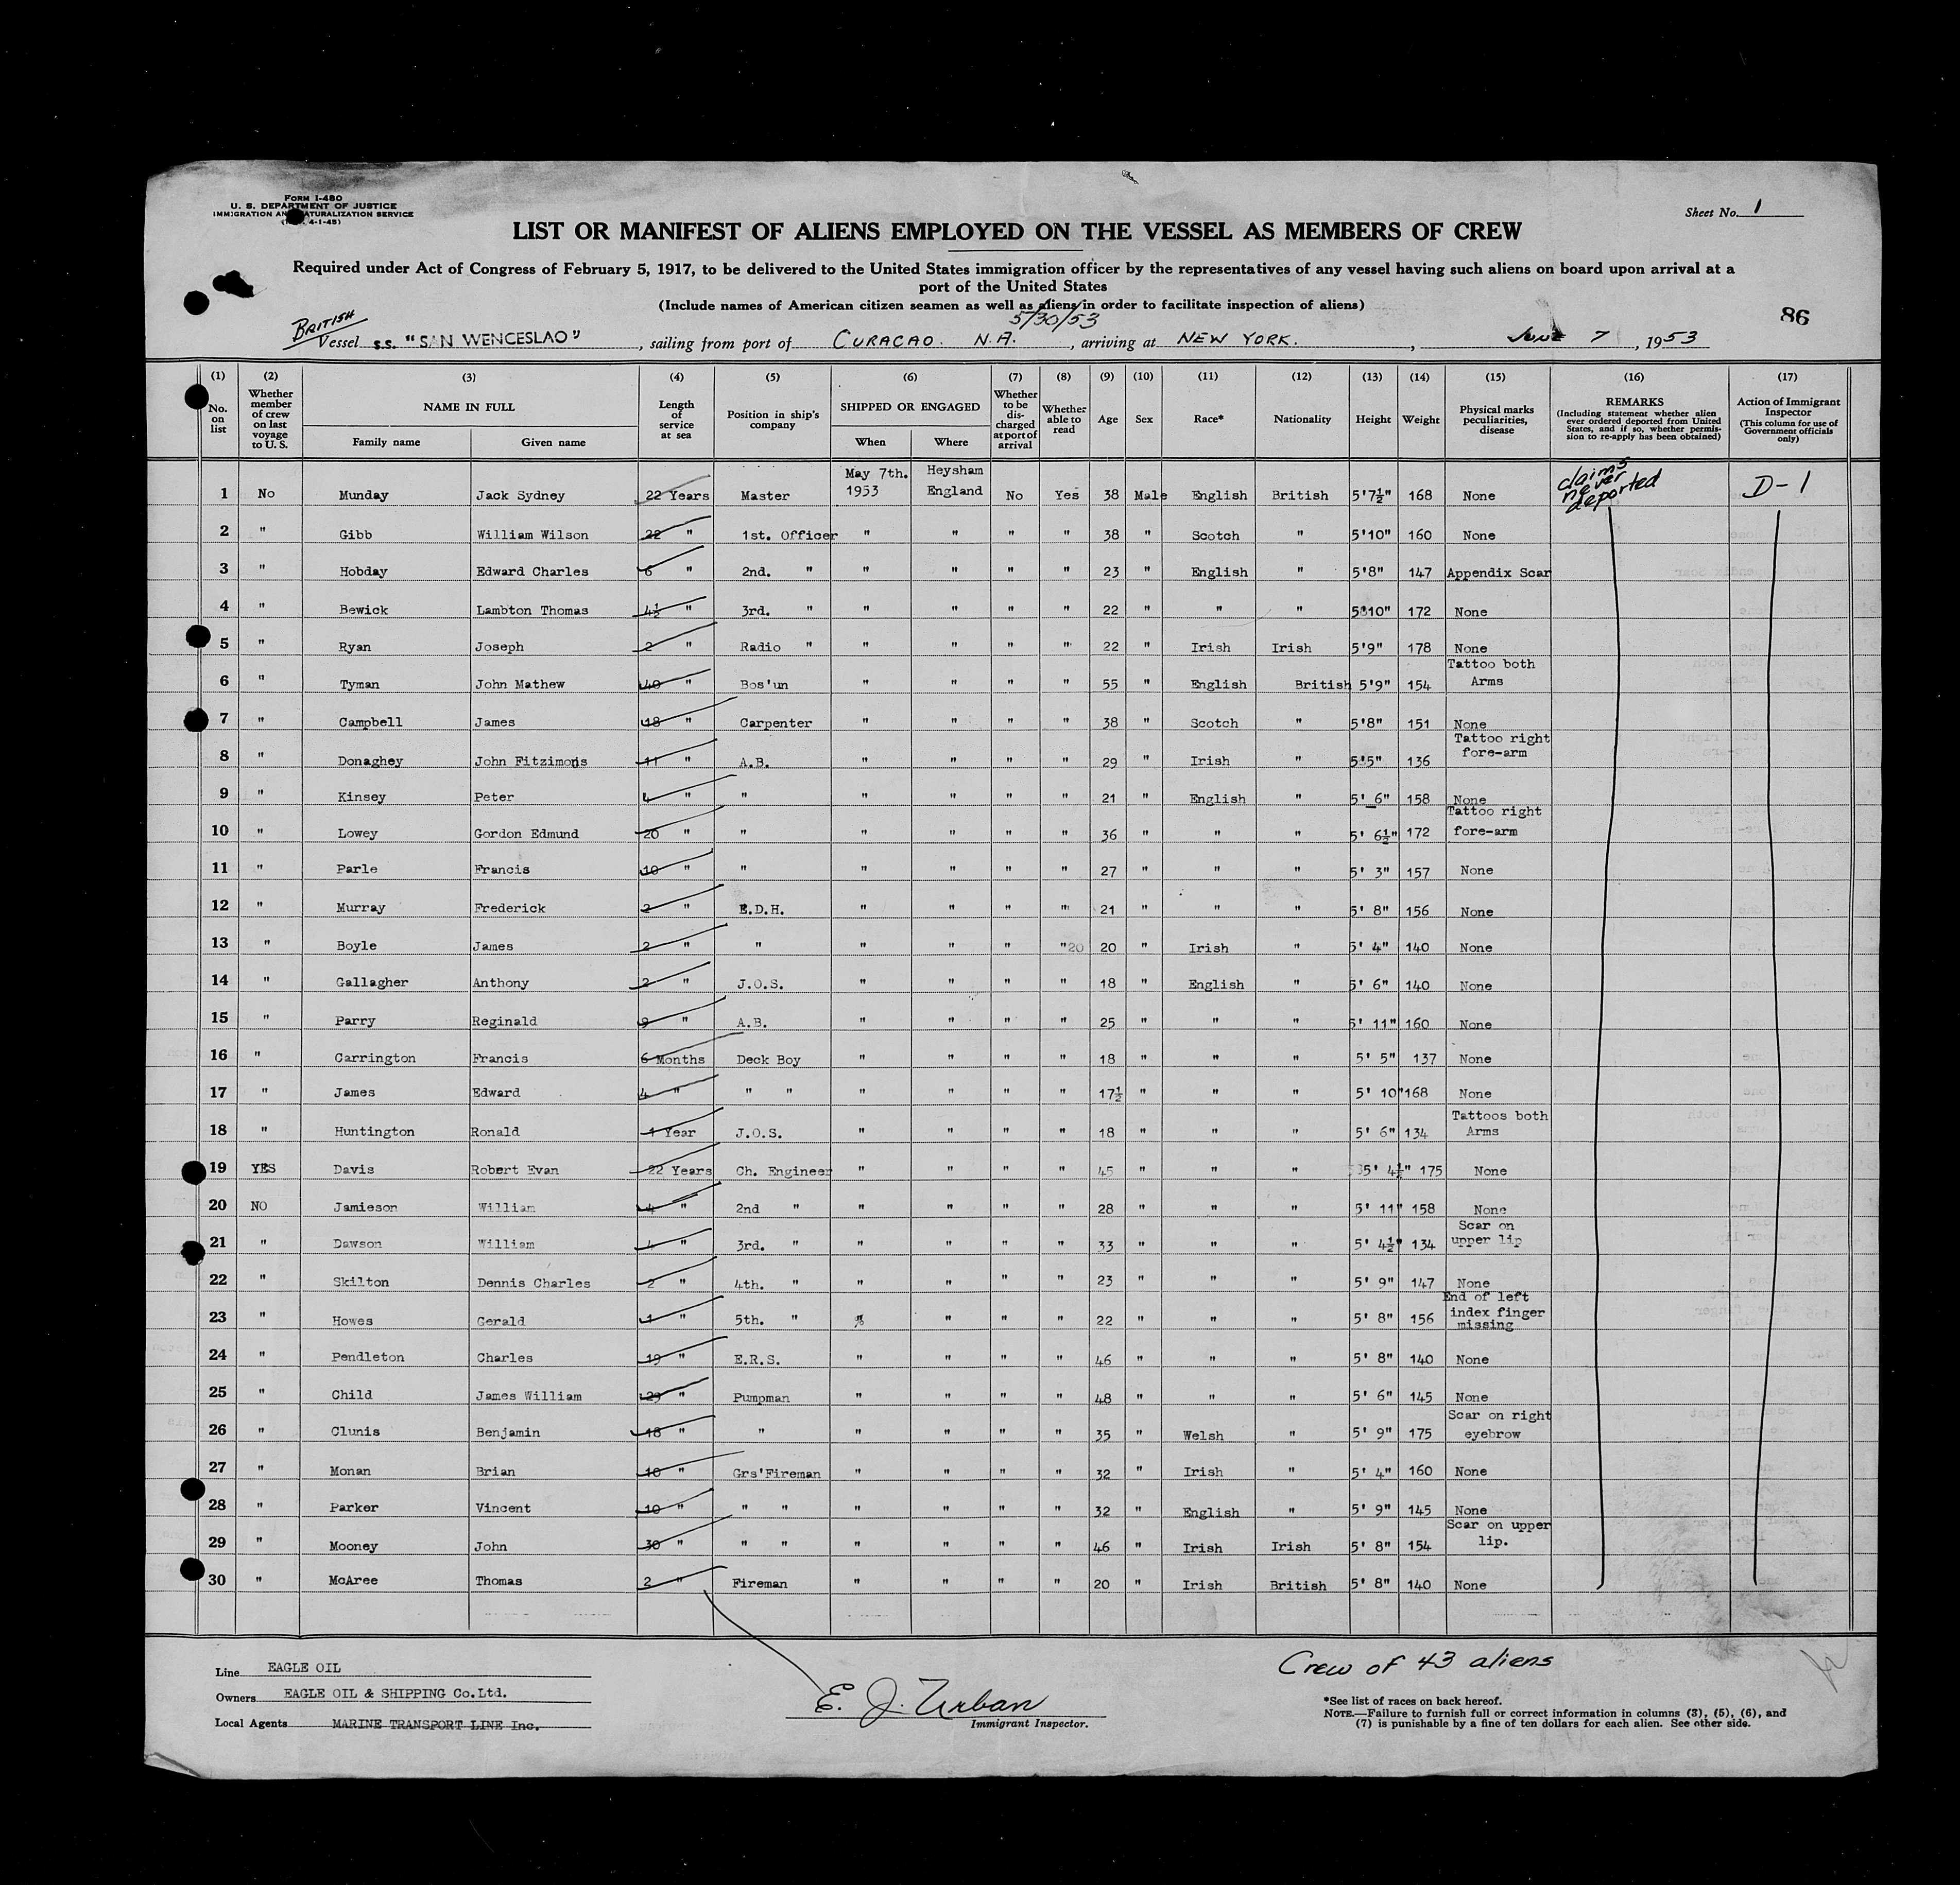 FORM I-480
U. S. DEPARTMENT OF JUSTICE
IMMIGRATION AND NATURALIZATION SERVICE
4-1-45)
Sheet No. 1
LIST OR MANIFEST OF ALIENS EMPLOYED ON THE VESSEL AS MEMBERS OF CREW
Required under Act of Congress of February 5, 1917, to be delivered to the United States immigration officer by the representatives of any vessel having such aliens on board upon arrival at a
port of the United States
(Include names of American citizen seamen as well as aliens in order to facilitate inspection of aliens)
86
BRITISH
5/30/53
Vessel s.s. "SAN WENCESLAO", sailing from port of CURACAO. N.A., arriving at NEW YORK., JUNE 7, 1953
(1) (2) (3) (4) (5) (6) (7) (8) (9) (10) (11) (12) (13) (14) (15) (16) (17)
No. on list | Whether member of crew on last voyage to U. S. | NAME IN FULL | Family name | Given name | Length of service at sea | Position in ship's company | SHIPPED OR ENGAGED | When | Where | Whether to be discharged at port of arrival | Whether able to read | Age | Sex | Race* | Nationality | Height | Weight | Physical marks peculiarities, disease | REMARKS (Including statement whether alien ever ordered deported from United States, and if so, whether permission to re-apply has been obtained) | Action of Immigrant Inspector (This column for use of Government officials only)
1 No Munday Jack Sydney 22 Years Master May 7th. 1953 Heysham England No Yes 38 Male English British 5'7½" 168 None claims never deported D-1
2 " Gibb William Wilson 22 " 1st. Officer " " " " 38 " Scotch " 5'10" 160 None
3 " Hobday Edward Charles 6 " 2nd. " " " " " 23 " English " 5'8" 147 Appendix Scar
4 " Bewick Lambton Thomas 4½ " 3rd. " " " " " 22 " " " 5'10" 172 None
5 " Ryan Joseph 2 " Radio " " " " " 22 " Irish Irish 5'9" 178 None
6 " Tyman John Mathew 40 " Bos'un " " " " 55 " English British 5'9" 154 Tattoo both Arms
7 " Campbell James 18 " Carpenter " " " " 38 " Scotch " 5'8" 151 None
8 " Donaghey John Fitzimons 11 " A.B. " " " " 29 " Irish " 5'5" 136 Tattoo right fore-arm
9 " Kinsey Peter 4 " " " " " " 21 " English " 5' 6" 158 None
10 " Lowey Gordon Edmund 20 " " " " " " 36 " " " 5' 6½" 172 Tattoo right fore-arm
11 " Parle Francis 10 " " " " " " 27 " " " 5' 3" 157 None
12 " Murray Frederick 2 " E.D.H. " " " " 21 " " " 5' 8" 156 None
13 " Boyle James 2 " " " " " "20 20 " Irish " 5' 4" 140 None
14 " Gallagher Anthony 2 " J.O.S. " " " " 18 " English " 5' 6" 140 None
15 " Parry Reginald 9 " A.B. " " " " 25 " " " 5' 11" 160 None
16 " Carrington Francis 6 Months Deck Boy " " " " 18 " " " 5' 5" 137 None
17 " James Edward 4 " " " " " " " 17½ " " " 5' 10" 168 None
18 " Huntington Ronald 1 Year J.O.S. " " " " 18 " " " 5' 6" 134 Tattoos both Arms
19 YES Davis Robert Evan 22 Years Ch. Engineer " " " " 45 " " " 5' 4½" 175 None
20 NO Jamieson William 4 " 2nd " " " " " 28 " " " 5' 11" 158 None
21 " Dawson William 4 " 3rd. " " " " " 33 " " " 5' 4½" 134 Scar on upper lip
22 " Skilton Dennis Charles 2 " 4th. " " " " " 23 " " " 5' 9" 147 None
23 " Howes Gerald 1 " 5th. " " " " " 22 " " " 5' 8" 156 End of left index finger missing
24 " Pendleton Charles 19 " E.R.S. " " " " 46 " " " 5' 8" 140 None
25 " Child James William 29 " Pumpman " " " " 48 " " " 5' 6" 145 None
26 " Clunis Benjamin 18 " " " " " " 35 " Welsh " 5' 9" 175 Scar on right eyebrow
27 " Monan Brian 10 " Grs'Fireman " " " " 32 " Irish " 5' 4" 160 None
28 " Parker Vincent 10 " " " " " " " 32 " English " 5' 9" 145 None
29 " Mooney John 30 " " " " " " " 46 " Irish Irish 5' 8" 154 Scar on upper lip.
30 " McAree Thomas 2 " Fireman " " " " 20 " Irish British 5' 8" 140 None
Line EAGLE OIL
Owners EAGLE OIL & SHIPPING Co.Ltd.
Local Agents MARINE TRANSPORT LINE Inc.
E. J. Urban
Immigrant Inspector.
Crew of 43 aliens
*See list of races on back hereof.
NOTE.—Failure to furnish full or correct information in columns (3), (5), (6), and
(7) is punishable by a fine of ten dollars for each alien. See other side.